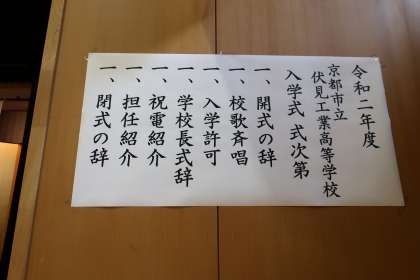 令和二年度
京都市立
伏見工業高等学校
入学式 式次第
一、開式の辞
一、校歌斉唱
一、入学許可
一、学校長式辞
一、祝電紹介
一、担任紹介
一、閉式の辞